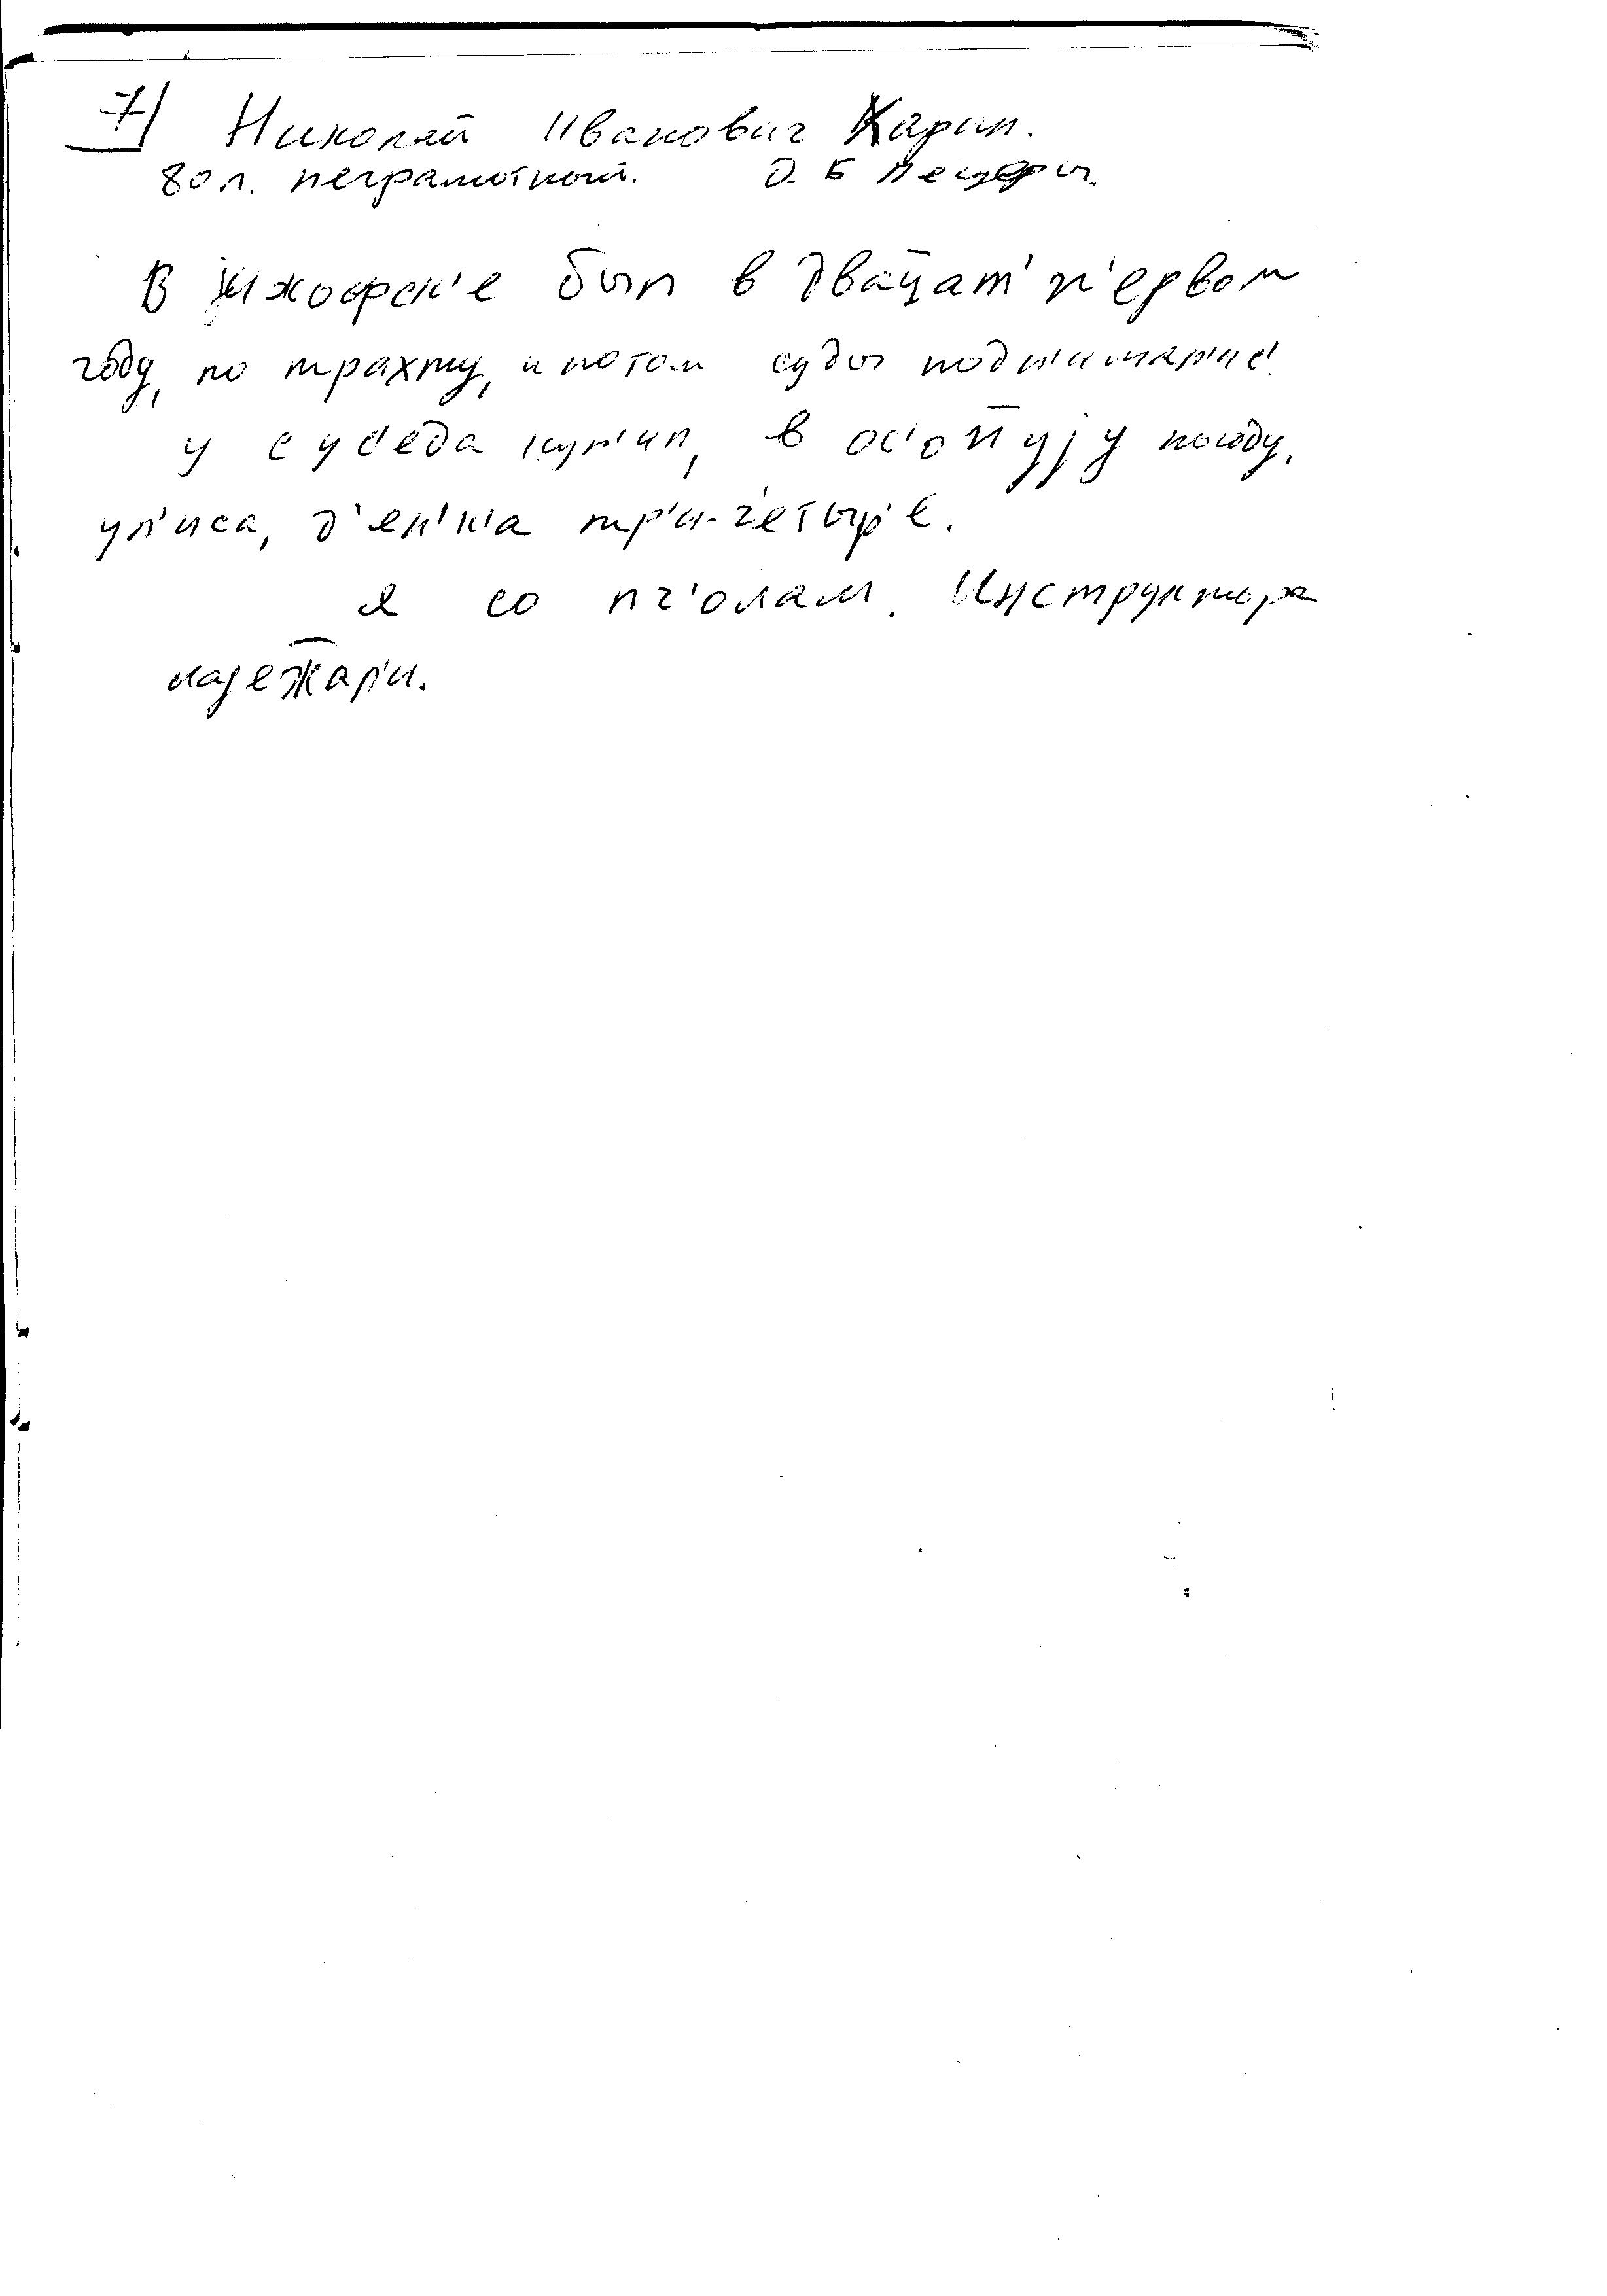 7) Николай Иванович Карин.
80 л. неграмотной. д. Б Пещеры.
В Ижофск'е был в двац̄ат' п'ервом
году, по трахту, и потом суды
у сус'еда купил, в ос'о п̄ују
ул'иса, д'ен'к'а тр'и-четыр'е.
я со пч'олам. Инструктора